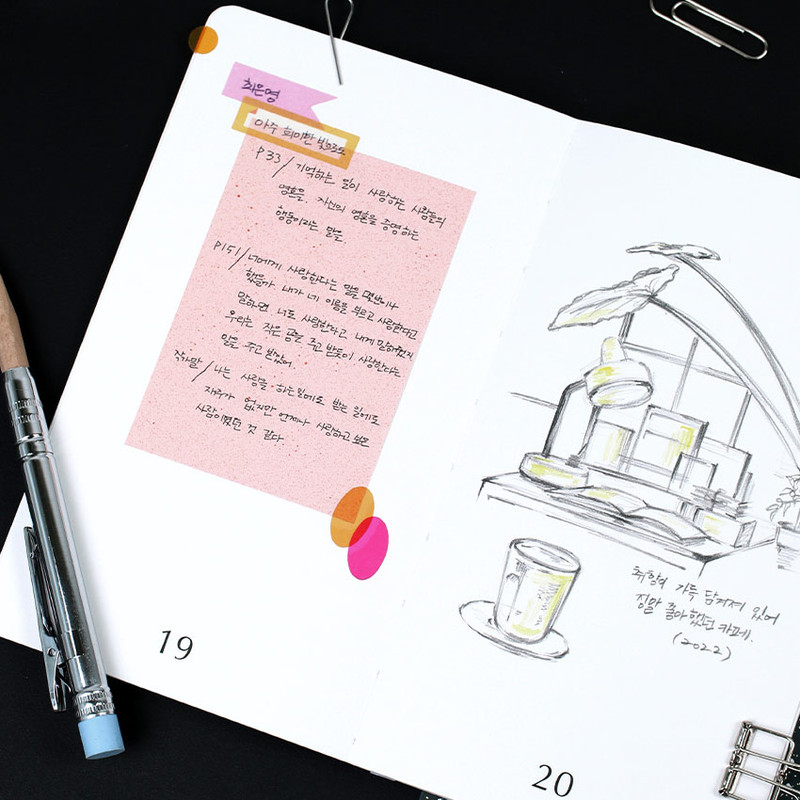 최은영
아주 희미한 빛으로도
P33/ 기억하는 일이 사랑하는 사람들의
영혼을, 자신의 영혼을 증명하는
행동이라는 말을.
P151/ 너에게 사랑한다는 말을 몇번이나
했을까 내가 네 이름을 부르고 사랑한다고
말하면 너도 사랑한다고 내게 말해줬지
우리는 작은 공을 주고 받듯이 사랑한다는
말을 주고 받았어.
작가말/ 나는 사람을. 하는 일에도 받는 일에도
재주가 없지만 언제나 사랑하고 싶은
사람이었던 것 같다.
19
취향이 가득 담겨져 있어
정말 좋아했던 카페.
(2022)
20